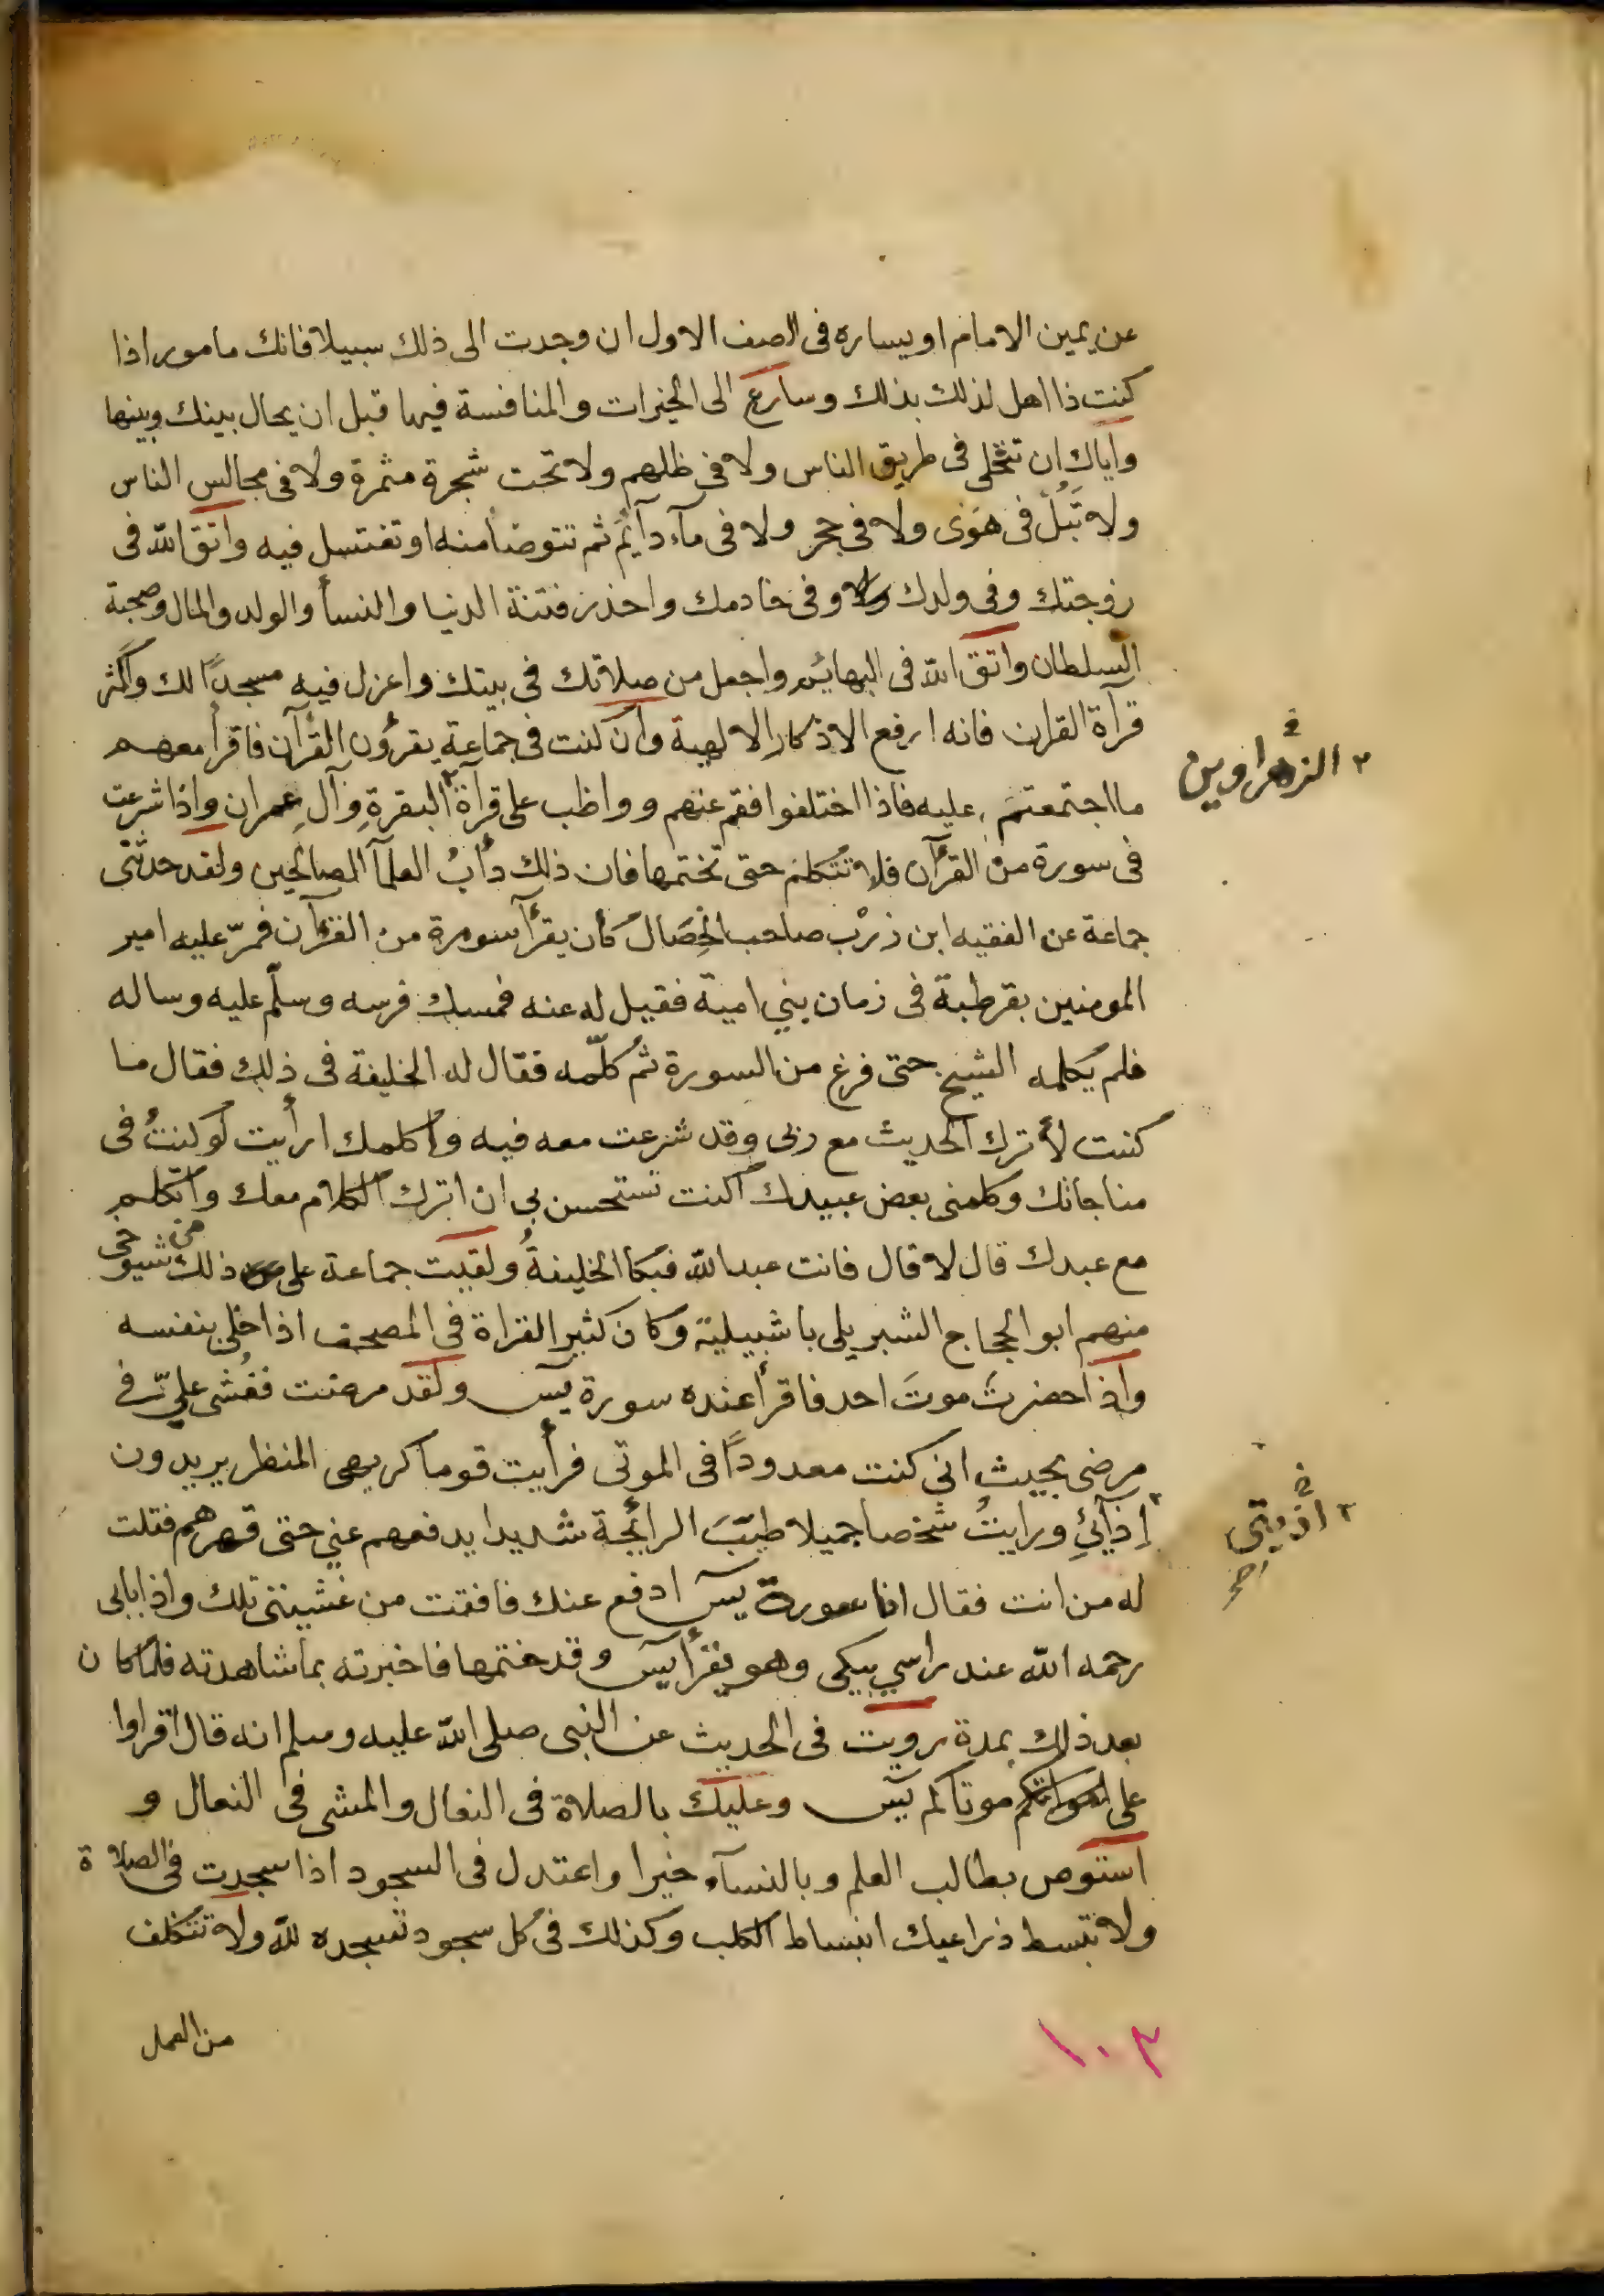 عن يمين الامام او يساره فى الصف الاول ان وجدت الى ذلك سبيلا فانك مامور اذا
كنت ذا اهل لذلك بذلك وسارع الى الخيرات والمنافسة فيها قبل ان يحال بينك وبينها
واياك ان تتخلى فى طريق الناس ولا فى ظلهم ولا تحت شجرة مثمرة ولا فى مجالس الناس
ولا تَبُلْ فى هوى ولا فى جحر ولا فى مآء دآيم ثم تتوضا منه او تغتسل فيه واتق الله فى
زوجتك وفى ولدك وفى خادمك واحذر فتنة الدنيا والنسأ والولد والمال وصحبة
السلطان واتق الله فى البهايم واجعل من صلاتك فى بيتك واعزل فيه مسجدًا لك واكثر
قرآة القران فانه ارفع الاذكار الالهية وان كنت فى جماعة يقرؤن القرآن فاقرأ معهم
ما اجتمعتم عليه فاذا اختلفوا فقم عنهم وواظب على قرآة ٢ البقرةِ وآلِ عمران واذا شرعت
٢ الزهراوين خ
فى سورة من القرآن فلا تتكلم حتى تختمها فان ذلك دأبُ العلمآ الصالحين ولقد حدثنى
جماعة عن الفقيه ابن زرْب صاحب الخِصَال كان يقرأ سورة من القرآن فمرّ عليه امير
المومنين بقرطبة فى زمان بني امية فقيل له عنه فمسك فرسه وسلّم عليه وساله
فلم يكلمه الشيخ حتى فرغ من السورة ثم كلّمه فقال له الخليفة فى ذلك فقال ما
كنت لأترك الحديث مع ربى وقد شرعت معه فيه واكلمك ارأيت لو كنتُ فى
مناجاتك وكلمنى بعض عبيدك اكنت تستحسن بى ان اترك الكلام معك واتكلم
مع عبدك قال لا قال فانت عبد الله فبكا الخليفةُ ولقيت جماعة على ذلك من شيوخى
منهم ابو الحجاج الشبريلى باشبيلية وكان كثير القراة فى المصحف اذا خلى بنفسه
واذا حضرتَ موتَ احد فاقرأ عنده سورة يس ولقد مرضت فغُشى عليّ فى
مرضى بحيث انى كنت معدودًا فى الموتى فرأيت قوما كريهى المنظر يريدون
٢ إذآئي ورايتُ شخصا جميلا طيّبَ الرائحة شديدا يدفعهم عني حتى قهرهم فقلت
٢ اذيتى خ صح
له من انت فقال انا سورة يس ادفع عنك فافقت من غشيتى تلك واذا بابى
رحمه الله عند راسي يبكى وهو يقرأ يس وقد ختمها فاخبرته بما شاهدته فلما كان
بعد ذلك بمدة رويت فى الحديث عن النبى صلى الله عليه وسلم انه قال اقراوا
على موتاكم يس وعليك بالصلاة فى النعال والمشى فى النعال و
استوص بطالب العلم وبالنسآء خيرا واعتدل فى السجود اذا سجدت فى الصلاة
ولا تبسط ذراعيك انبساط الكلب وكذلك فى كل سجود تسجده لله ولا تتكلف
من العمل
١٠٣